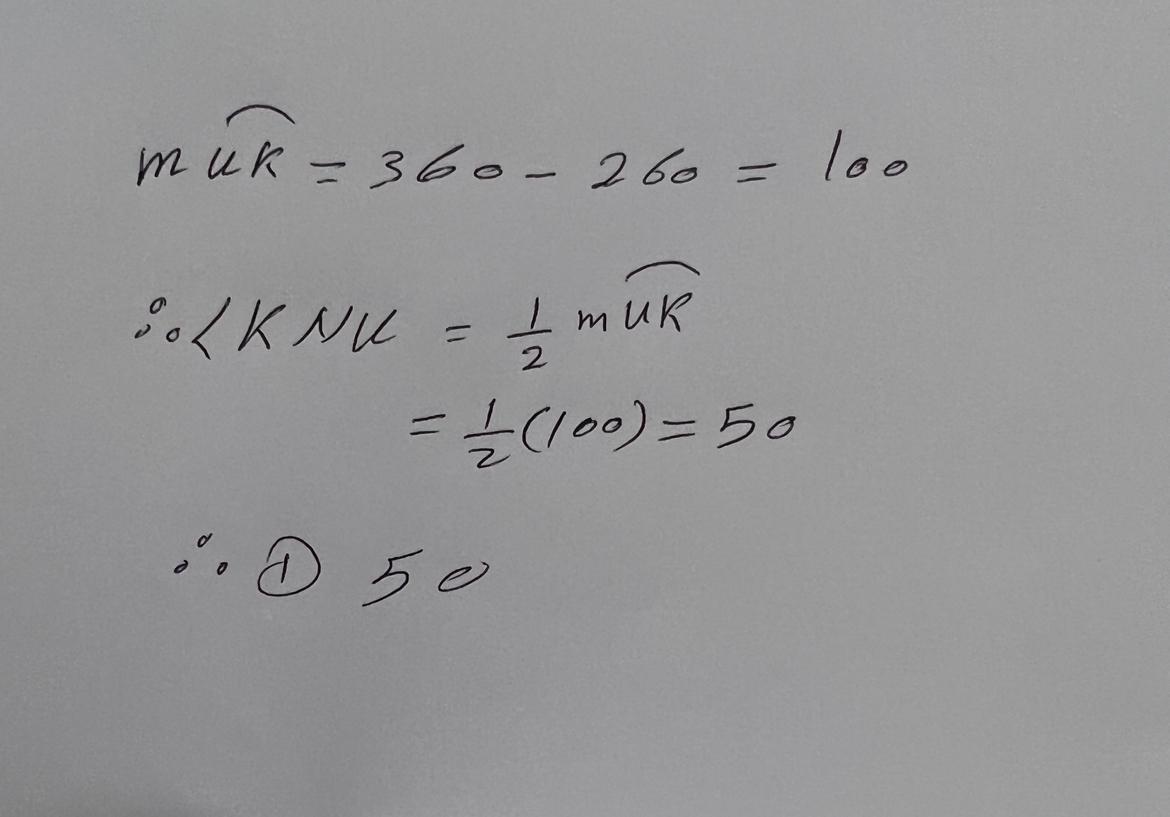 m⌒UK = 360 - 260 = 100
∴ ∠KNU = 1/2 m⌒UK
= 1/2 (100) = 50
∴ ① 50